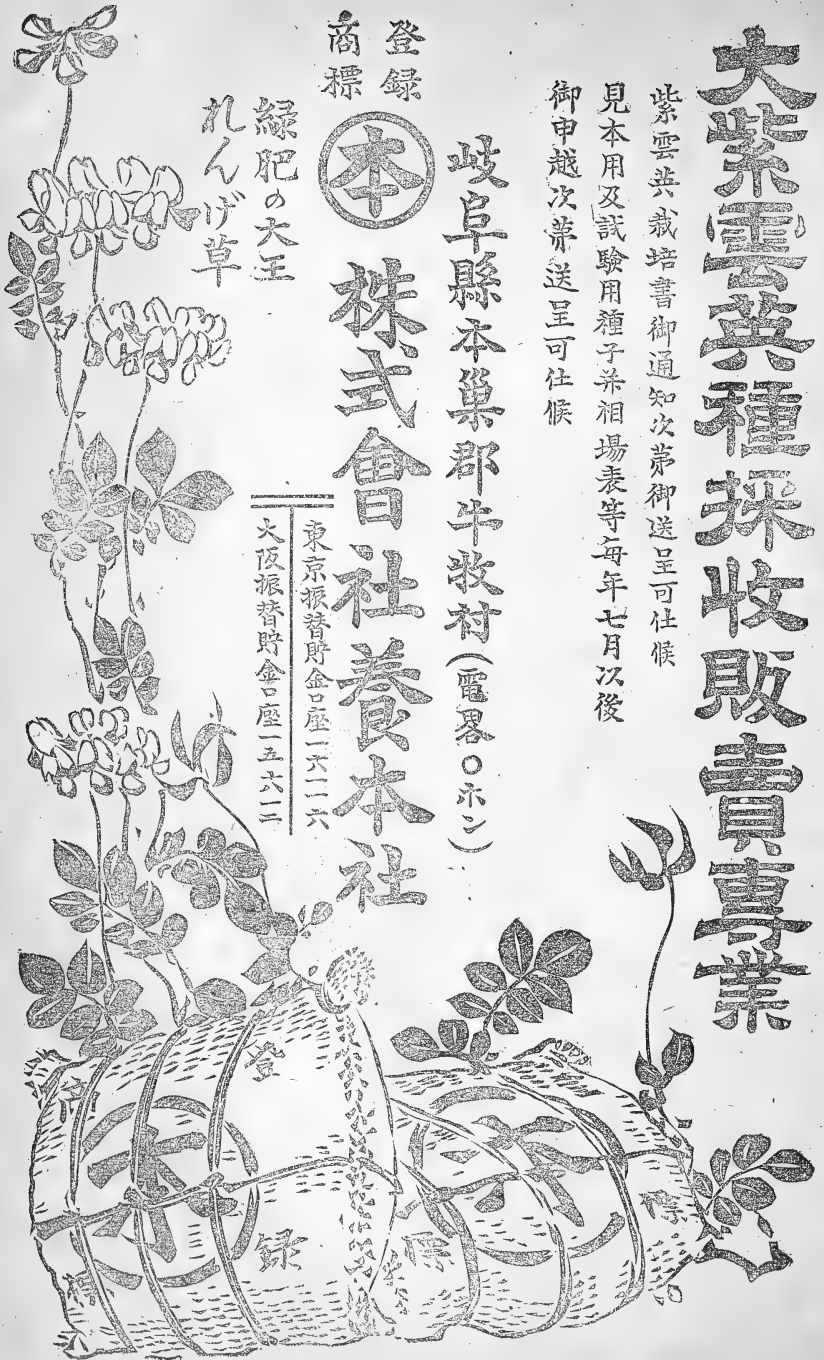 大紫雲英種採收販賣專業
紫雲英栽培書御通知次第御送呈可仕候
見本用及試驗用種子并相場表等每年七月次後
御申越次第送呈可仕候
岐阜縣本巢郡牛牧村(電畧〇ホン)
登録
商標
本
株式會社養本社
東京振替貯金口座一六一一六
大阪振替貯金口座一五六一二
緑肥の大王
れんげ草
登
録
本
商
標